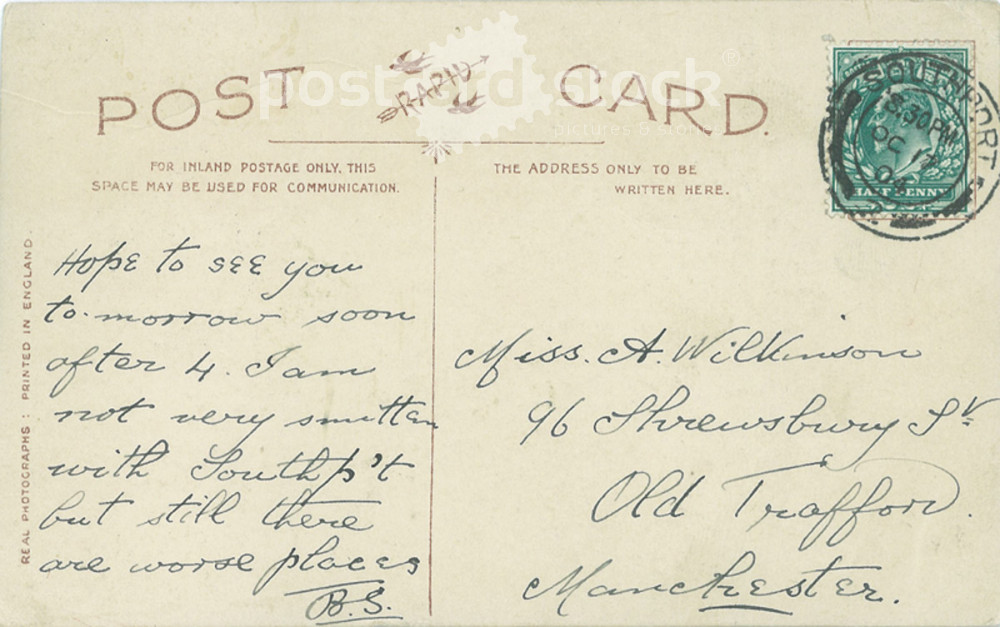 POST RAPID CARD.
postcard stock
pictures & stories
FOR INLAND POSTAGE ONLY, THIS
SPACE MAY BE USED FOR COMMUNICATION.
THE ADDRESS ONLY TO BE
WRITTEN HERE.
SOUTHPORT
5.30PM
OC 17
04
HALF PENNY
REAL PHOTOGRAPHS : PRINTED IN ENGLAND.
Hope to see you
to-morrow soon
after 4. I am
not very smitten
with Southp't
but still there
are worse places
B.S.
Miss. A. Wilkinson
96 Shrewsbury St
Old Trafford.
Manchester.